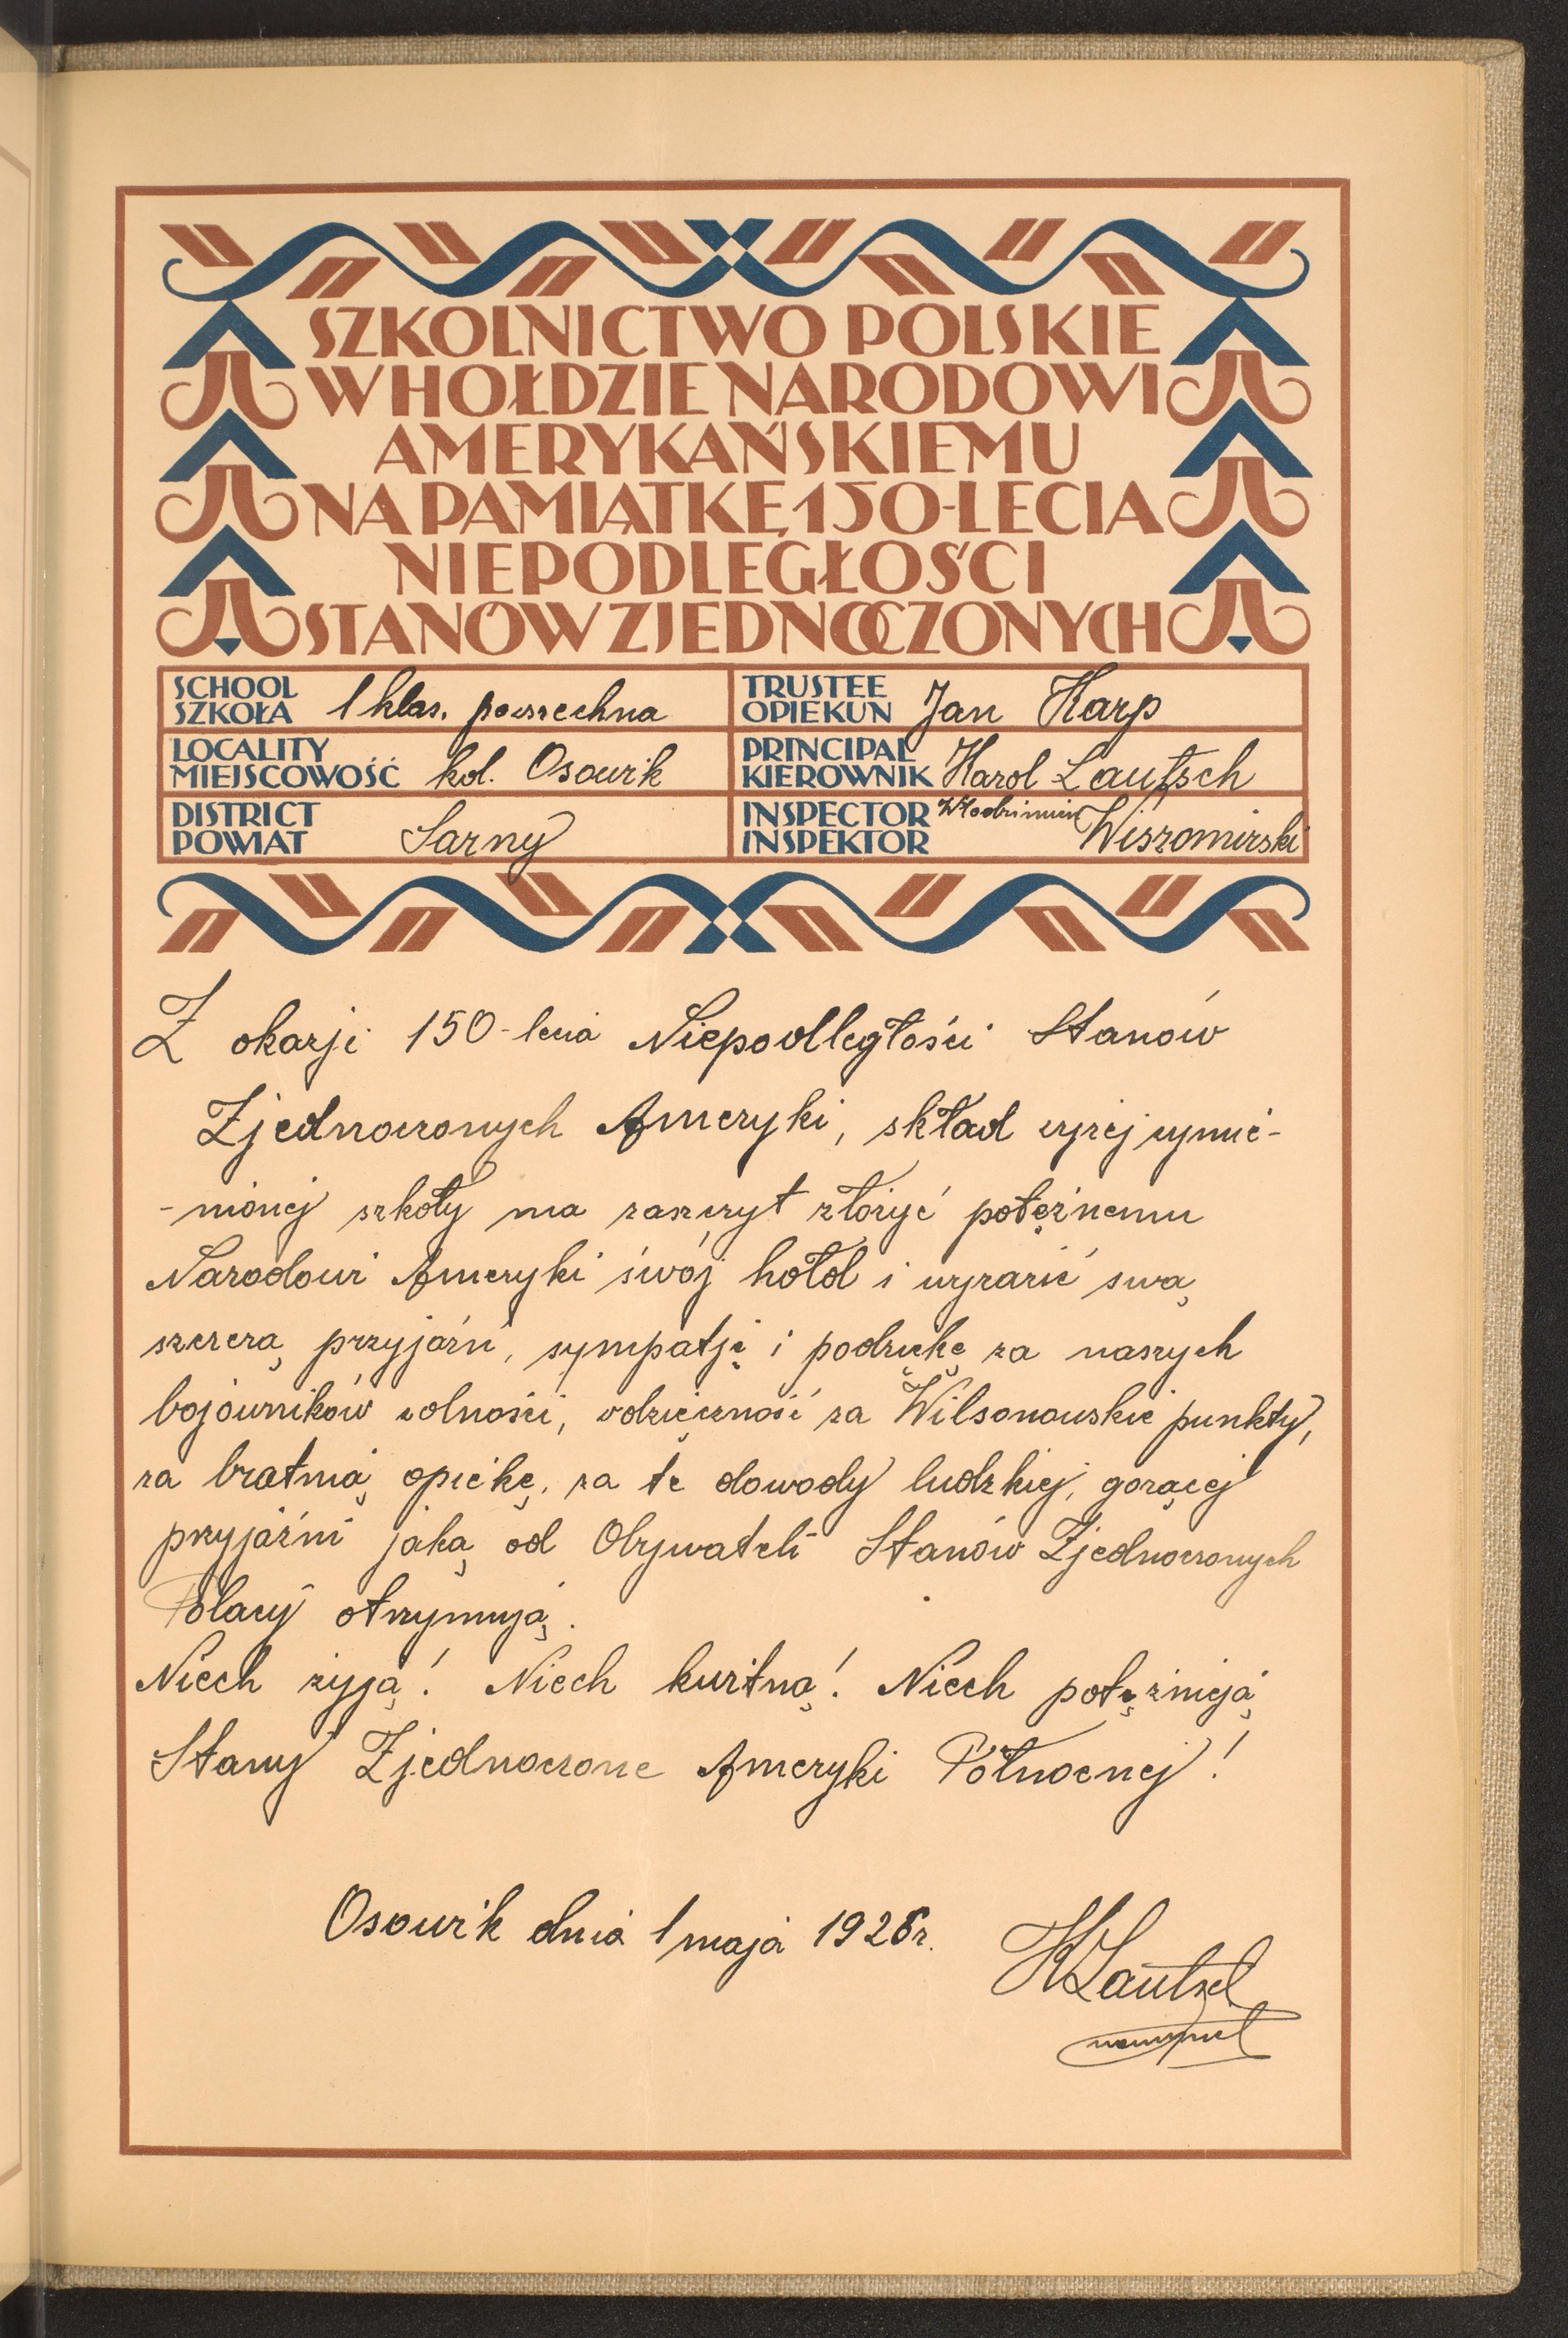 SZKOLNICTWO POLSKIE
W HOŁDZIE NARODOWI
AMERYKAŃSKIEMU
NA PAMIĄTKĘ 150-LECIA
NIEPODLEGŁOŚCI
STANÓW ZJEDNOCZONYCH
SCHOOL
SZKOŁA 1 klas. powszechna
TRUSTEE
OPIEKUN Jan Karp
LOCALITY
MIEJSCOWOŚĆ kol. Osowik
PRINCIPAL
KIEROWNIK Karol Lautsch
DISTRICT
POWIAT Sarny
INSPECTOR
INSPEKTOR Włodzimierz Wiszomirski
Z okazji 150-lecia Niepodległości Stanów
Zjednoczonych Ameryki, skład wyżej wymie-
-nionej szkoły ma zaszczyt złożyć potężnemu
Narodowi Ameryki swój hołd i wyrazić swą
szczerą przyjaźń, sympatję i podziękę za naszych
bojowników wolności, wdzięczność za Wilsonowskie punkty,
za bratnią opiekę, za te dowody ludzkiej, gorącej
przyjaźni jaką od Obywateli Stanów Zjednoczonych
Polacy otrzymują.
Niech żyją! Niech kwitną! Niech potężnieją
Stany Zjednoczone Ameryki Północnej!
Osowik dnia 1 maja 1926 r.
K Lautsch